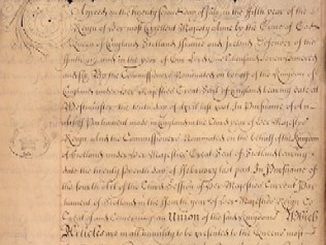 Agreed on the twenty second day of July in the Fifth year of the
Reign of Her most Excellent Majesty Anne by the Grace of God
Queen of England Scotland France and Ireland Defender of the
Faith &c and in the year of our Lord One thousand seven hundred
and six By the Commissioners Nominated on behalf of the Kingdom of
England under Her Majestys Great Seal of England bearing date at
Westminster the tenth day of April last past In Pursuance of
of Parliament made in England in the Third year of Her Majestys
Reign and the Commissioners Nominated on the behalf of the Kingdom
of Scotland under Her Majestys Great Seal of Scotland bearing
date the twenty Seventh day of February last past In Pursuance of
the fourth Act of the third Session of Her Majestys Current Parliament
of Scotland in the year of Her Majestys Reign to
Treat of and concerning an Union of the said Kingdoms Which
Articles are in all humility to be presented to the Queens most